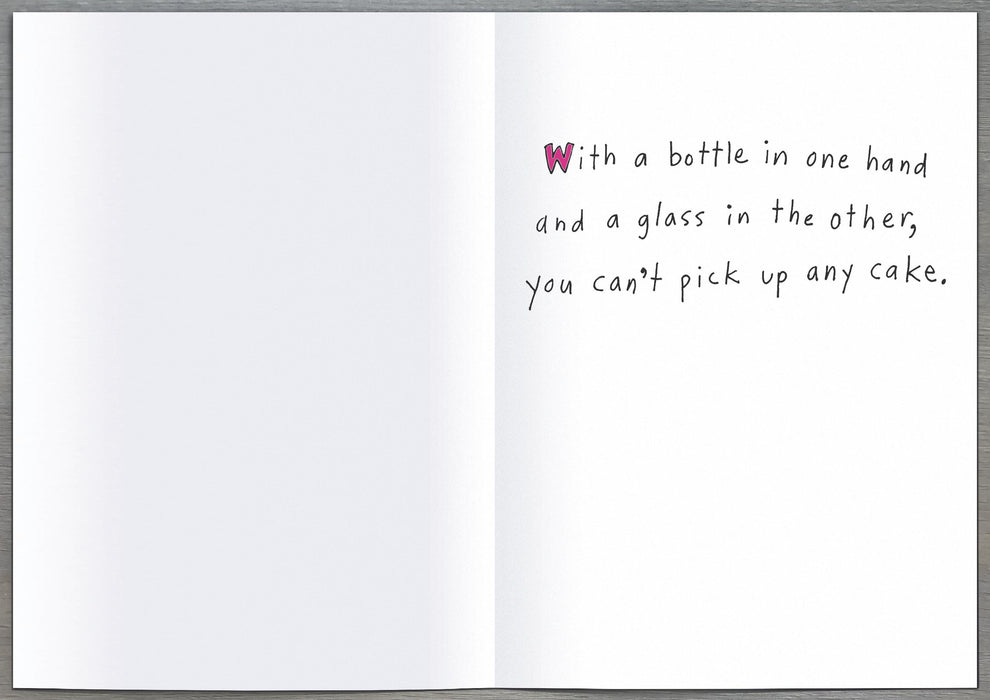 With a bottle in one hand
and a glass in the other,
you can't pick up any cake.